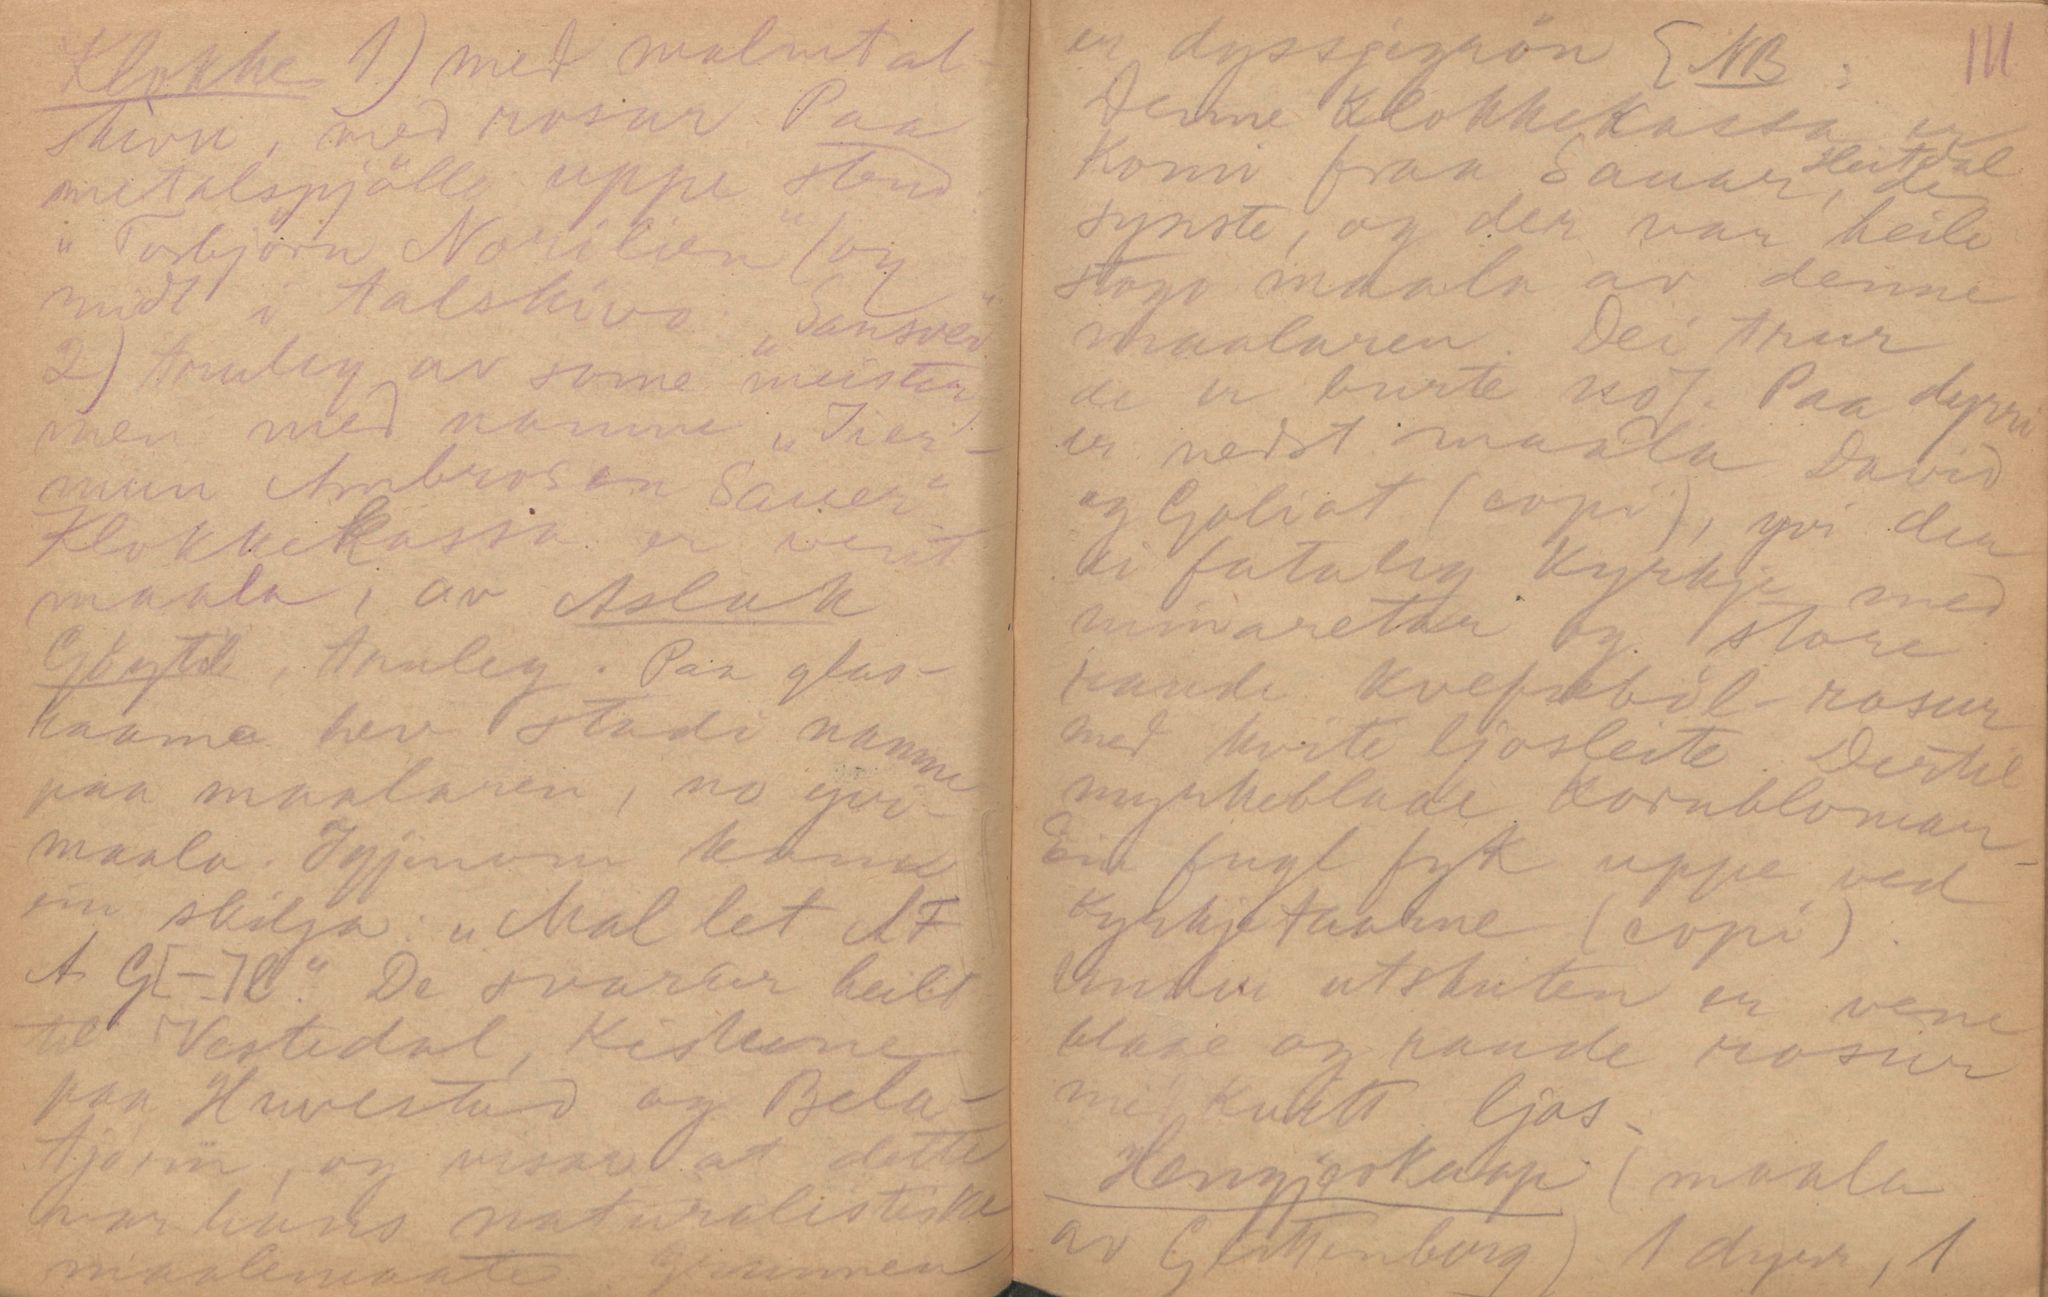 Klokke 1) med malmtal-
skivu, med rosur. Paa
metalspjölle uppe stend
"Torbjörn Norilien" (og
midt i talskivo: "Sansver"
2) truleg av some meister,
men med namne "Iver-
mun Ambrosen Sauer".
Klokkekassa er verit
maala, av Aslak
Gjöytil, truleg. Paa glas-
raame hev stadi namne
paa maalaren, no yvi-
maala. Igjenom kann
ein skilja: "Mallet AF
A G[-]l." De svarar heilt
til Vestedal, Kistune
paa Huvestad og Bela-
tjørnn, og visar at dette
var hans naturalistiske
maalemaate. Grunnen
III
er dyssjegrön [NB:
Denne Klokkekassa er
Komi fraa Sauar, Heitdal de
synste, og der var heile
stogo maala av denne
maalaren. Dei trur
de er burte no]. Paa dyrri
er nedst maala David
og Goliat (copi), yvi den
ei fataleg Kyrkje med
minaretar og store
raude kvefseböl-rosur
med kvite ljosleite. Dertil
myrkeblaae Kornblomar-
Ein fugl fyk uppe ved
Kyrkjetaarne (copi).
Under utskoten er vene
blaae og raude rosur
mæ kvitt ljos-
Hengjeskaap (maala
av Guttenborg) 1 dyrr, 1